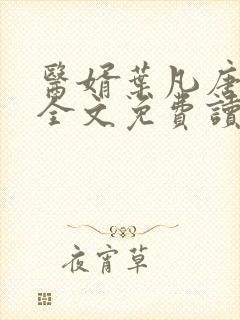 醫婿葉凡唐
全文免費讀
夜宵草